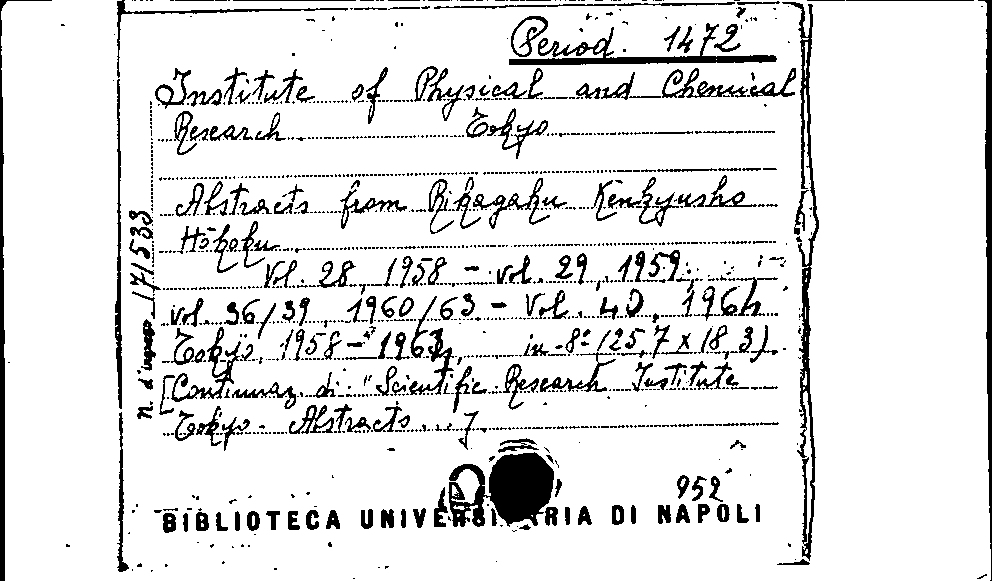 Period. 1472
Institute of Physical and Chemical
Research. Tokyo.
Abstracts from Rikagaku Kenkyusho
Hōkoku.
Vol. 28, 1958 - vol. 29, 1959;
vol. 36/39, 1960/63 - Vol. 40, 1964
Tokyo, 1958 - in -8° (25,7 x 18,3).
[Continuaz. di "Scientific Research Institute
Tokyo. Abstracts...]
n. d'ingresso 171533
952
BIBLIOTECA UNIVERSITARIA DI NAPOLI